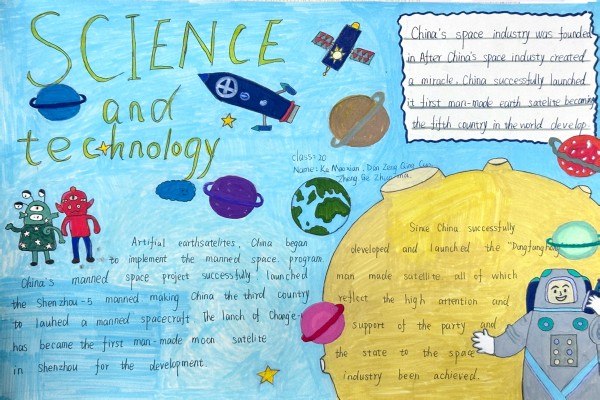 SCIENCE
and
technology
China's space industry was founded
in After China's space industy created
a miracle, China successfully launched
it first man-made earth satelite becoming
the fifth country in the world develop
class: 20
Name:
Artifial earthsatelites, China began
to implement the manned space program
China's manned space project successfully launched
the Shenzhou-5 manned making China the third country
to lauhed a manned spacecraft The lanch of Chang'e-1
has became the first man-made moon satelite
in Shenzhou for the development.
Since China successfully
developed and launched the "Dongfanghong
man made satellite all of which
reflect the high attention and
support of the party and
the state to the space
industry been achieved.